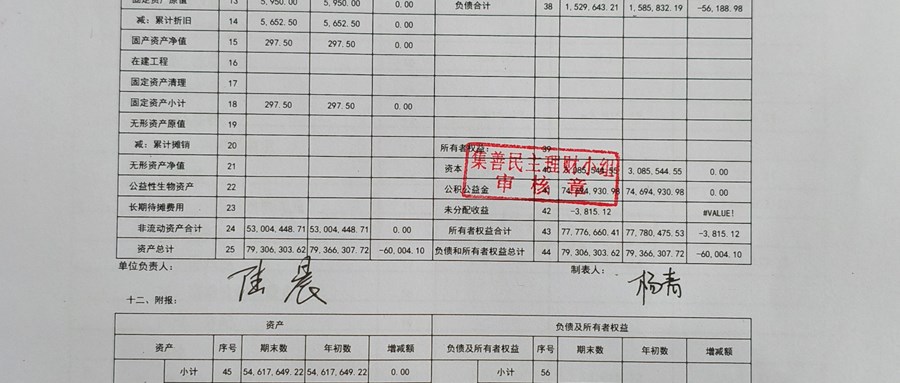 固定资产原值 13 5,950.00 5,950.00 0.00 负债合计 38 1,529,643.21 1,585,832.19 -56,188.98
减：累计折旧 14 5,652.50 5,652.50 0.00
固产资产净值 15 297.50 297.50 0.00
在建工程 16
固定资产清理 17
固定资产小计 18 297.50 297.50 0.00
无形资产原值 19
减：累计摊销 20 所有者权益： 39
无形资产净值 21 资本 40 3,085,544.55 3,085,544.55 0.00
公益性生物资产 22 公积公益金 41 74,694,930.98 74,694,930.98 0.00
长期待摊费用 23 未分配收益 42 -3,815.12 #VALUE!
非流动资产合计 24 53,004,448.71 53,004,448.71 0.00 所有者权益合计 43 77,776,660.41 77,780,475.53 -3,815.12
资产总计 25 79,306,303.62 79,366,307.72 -60,004.10 负债和所有者权益总计 44 79,306,303.62 79,366,307.72 -60,004.10
集善民主理财小组
审核章
单位负责人： 陆晨 制表人： 杨青
十二、附报：
资产 负债及所有者权益
资产 序号 期末数 年初数 增减额 负债及所有者权益 序号 期末数 年初数 增减额
小计 45 54,617,649.22 54,617,649.22 0.00 小计 56